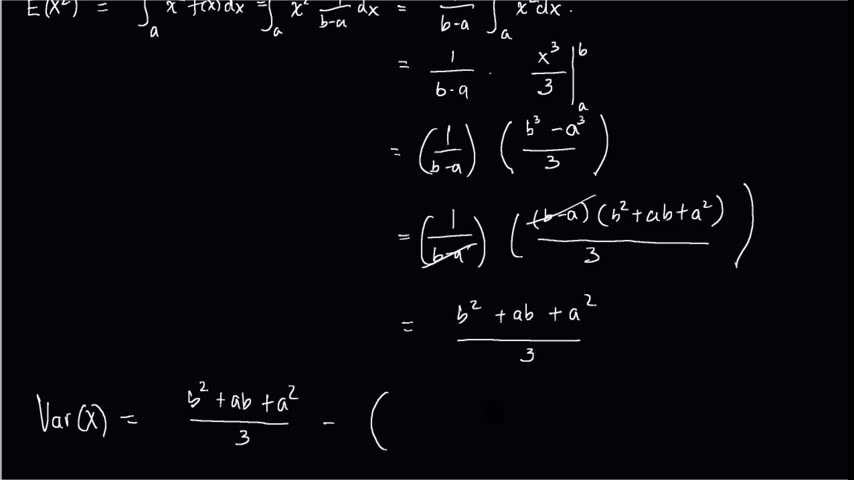 E(X²) = ∫ₐ x² f(x) dx = ∫ₐ x² 1/(b-a) dx = 1/(b-a) ∫ₐ x² dx.
= 1/(b-a) · x³/3 |ₐᵇ
= (1/(b-a)) ((b³ - a³)/3)
= (1/(b-a)) ((b-a)(b² + ab + a²)/3)
= (b² + ab + a²)/3
Var(X) = (b² + ab + a²)/3 - (